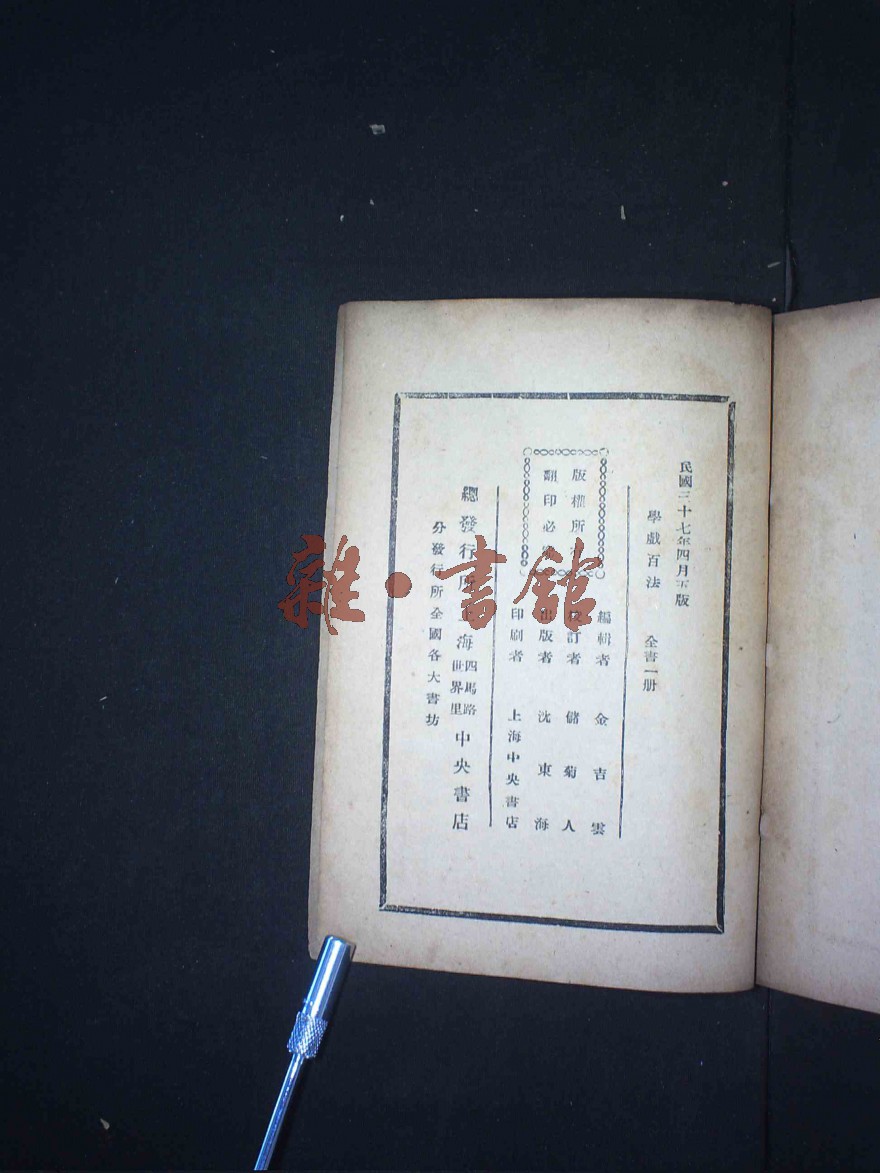 民國三十七年四月五版
學戲百法 全書一册
版權所
翻印必
編輯者 金吉雲
校訂者 儲菊人
出版者 沈東海
印刷者 上海中央書店
總發行所 上海四馬路世界里 中央書店
分發行所全國各大書坊
雜·書館